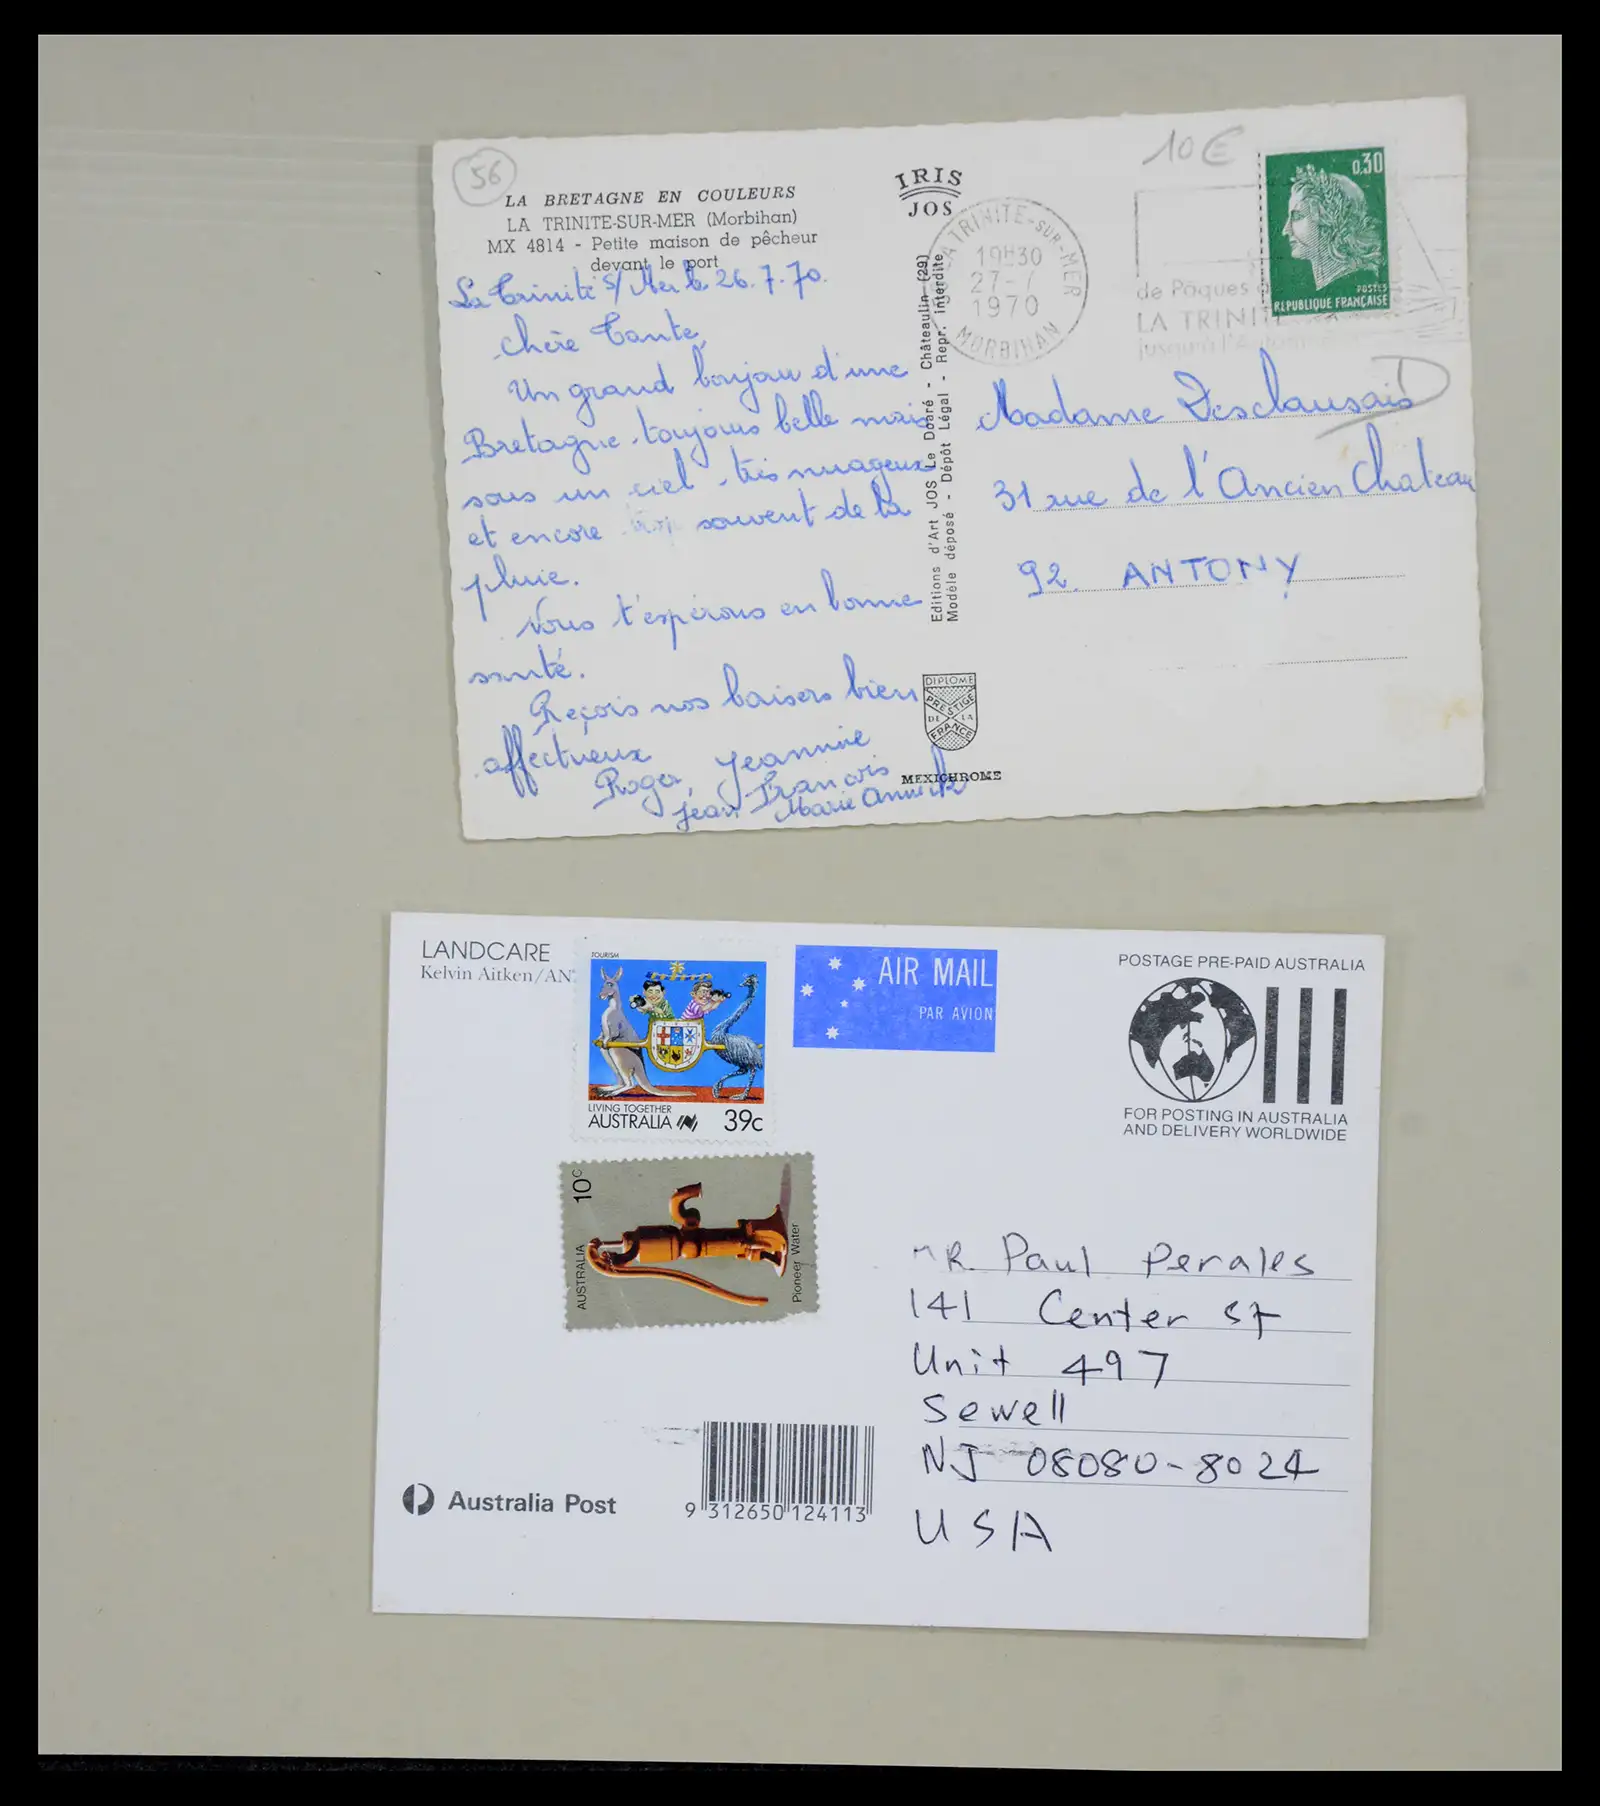 56
10€
LA BRETAGNE EN COULEURS
LA TRINITE-SUR-MER (Morbihan)
MX 4814 - Petite maison de pêcheur
devant le port
IRIS
JOS
LA TRINITE-SUR-MER
19H30
27-7
1970
MORBIHAN
de Pâques
LA TRINITE
jusqu'à l'Automne
0,30
POSTES
REPUBLIQUE FRANÇAISE
La Trinité s/Mer le 26.7.70.
Chère Tante,
Un grand bonjour d'une
Bretagne toujours belle mais
sous un ciel très nuageux
et encore trop souvent de la
pluie.
Nous t'espérons en bonne
santé.
Reçois nos baisers bien
affectueux
Roger, Jeannine
Jean François
Marie Annick
Editions d'Art JOS Le Doaré - Châteaulin (29)
Modèle déposé - Dépôt Légal - Repr. interdite
DIPLOME
PRESTIGE
DE LA
FRANCE
MEXICHROME
Madame Desclausais
31 rue de l'Ancien Chateau
92. ANTONY
LANDCARE
Kelvin Aitken/AN
TOURISM
LIVING TOGETHER
AUSTRALIA 39c
AIR MAIL
PAR AVION
POSTAGE PRE-PAID AUSTRALIA
FOR POSTING IN AUSTRALIA
AND DELIVERY WORLDWIDE
10c
AUSTRALIA
Pioneer Water
MR. Paul Perales
141 Center St
Unit 497
Sewell
NJ 08080-8024
USA
Australia Post
9 312650 124113